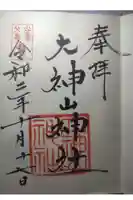 奉拝
大神山神社
令和二年十月十七日